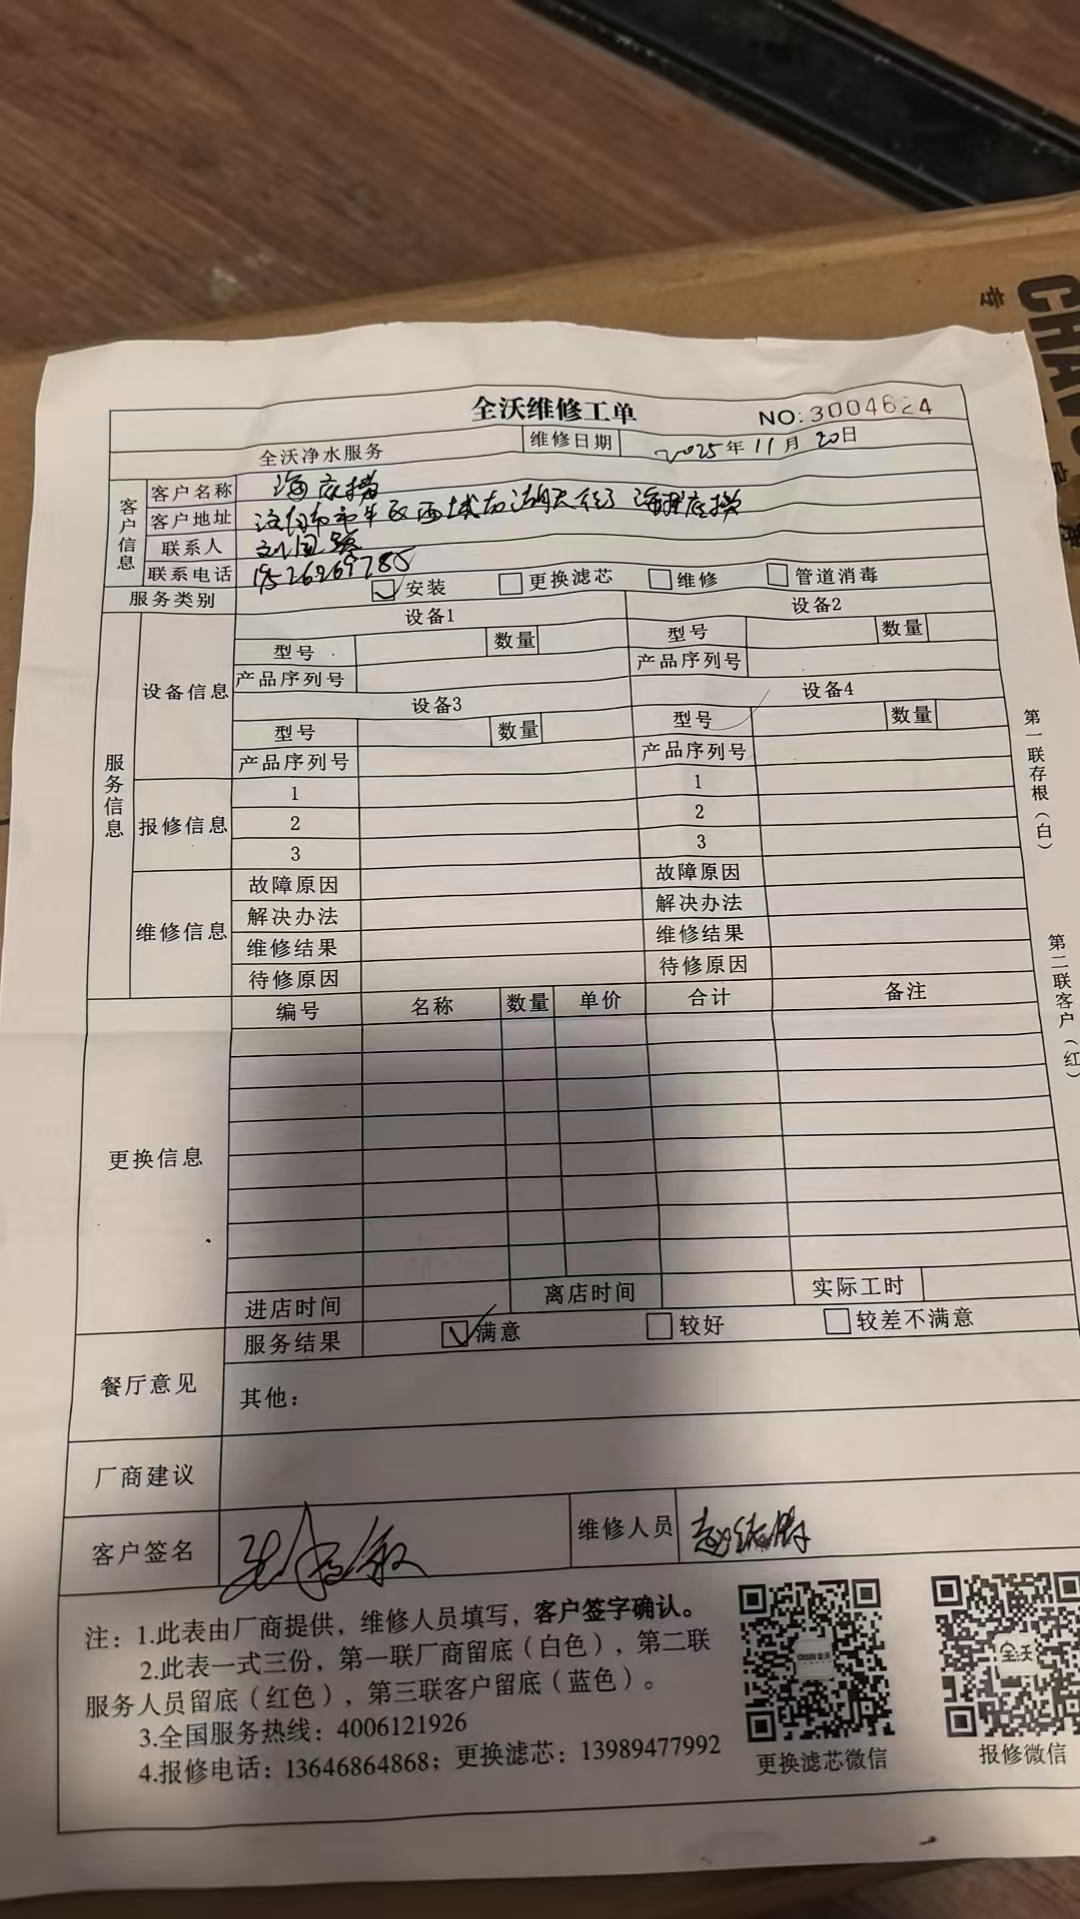 专
CHA
全沃维修工单
NO:3004624
全沃净水服务 维修日期 2025年11月20日
客户信息
客户名称 海底捞
客户地址 海底捞
联系人 刘国强
联系电话
服务类别 安装 更换滤芯 维修 管道消毒
服务信息
设备信息
设备1 设备2
型号 数量 型号 数量
产品序列号 产品序列号
设备3 设备4
型号 数量 型号 数量
产品序列号 产品序列号
报修信息
1 1
2 2
3 3
维修信息
故障原因 故障原因
解决办法 解决办法
维修结果 维修结果
待修原因 待修原因
更换信息
编号 名称 数量 单价 合计 备注
进店时间 离店时间 实际工时
餐厅意见
服务结果 满意 较好 较差不满意
其他：
厂商建议
客户签名 维修人员
第一联存根（白）
第二联客户（红）
注：1.此表由厂商提供，维修人员填写，客户签字确认。
2.此表一式三份，第一联厂商留底（白色），第二联
服务人员留底（红色），第三联客户留底（蓝色）。
3.全国服务热线：4006121926
4.报修电话：13646864868；更换滤芯：13989477992
全沃
更换滤芯微信
报修微信